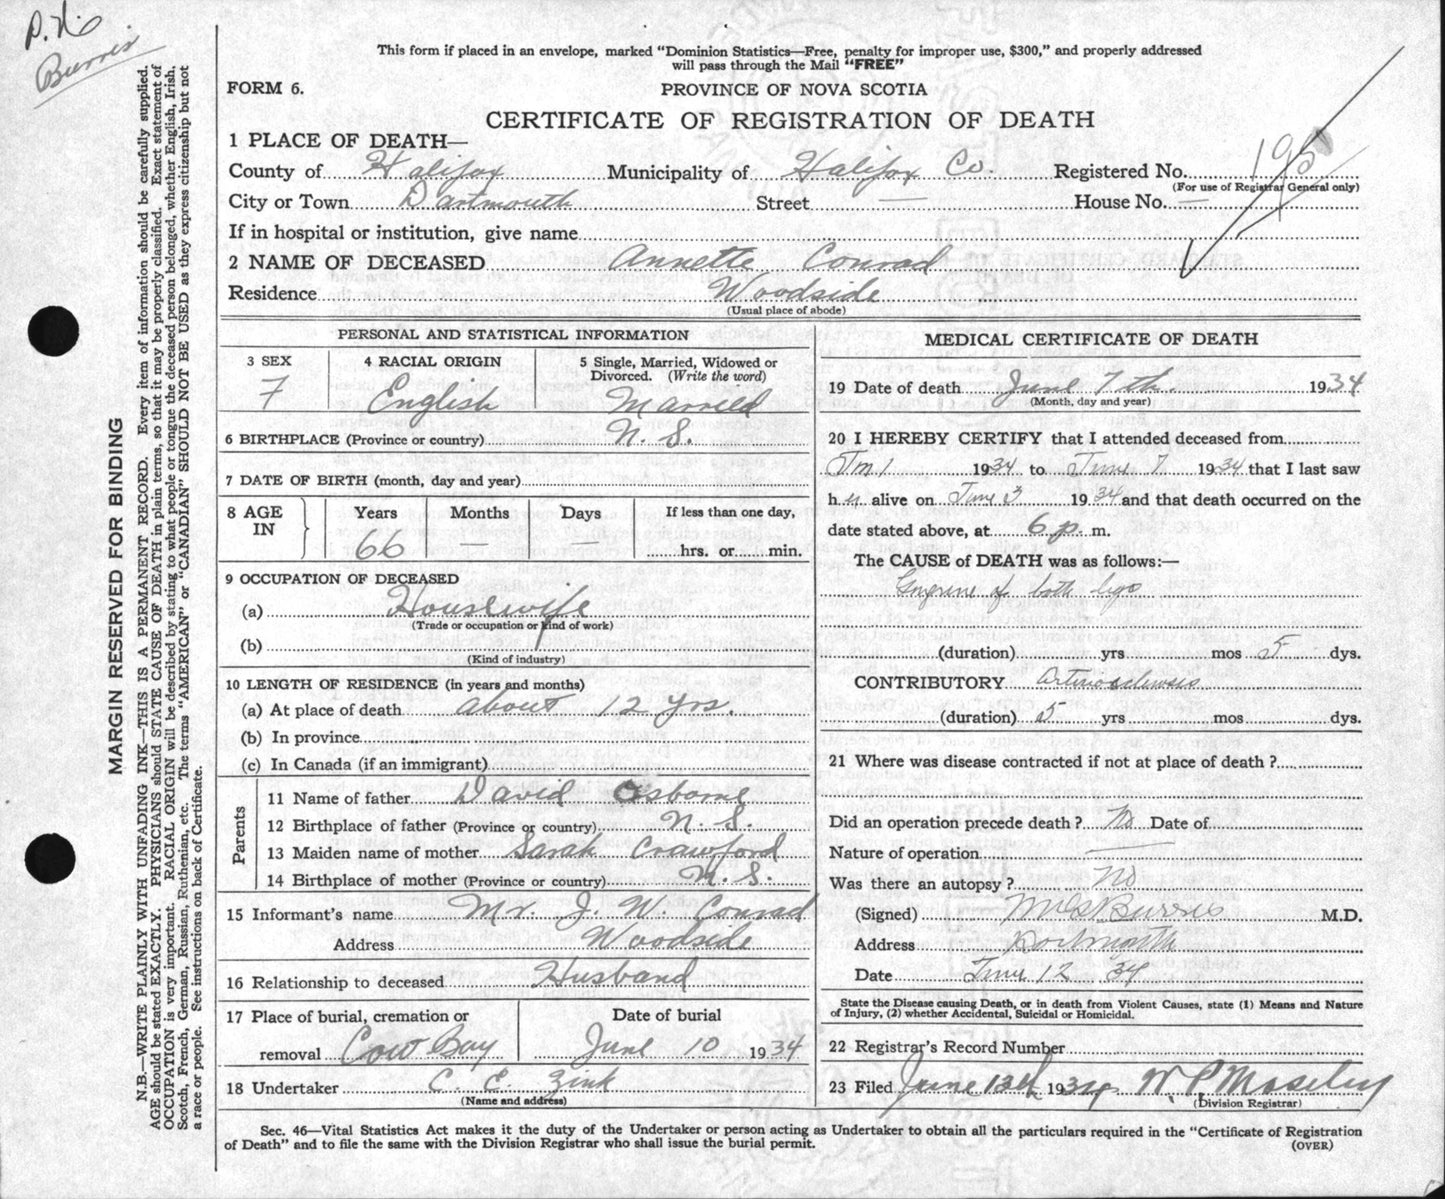 Burris
This form if placed in an envelope, marked "Dominion Statistics—Free, penalty for improper use, $300," and properly addressed
will pass through the Mail "FREE"
FORM 6.
PROVINCE OF NOVA SCOTIA
CERTIFICATE OF REGISTRATION OF DEATH
1 PLACE OF DEATH—
County of Halifax Municipality of Halifax Co. Registered No.
(For use of Registrar General only)
City or Town Dartmouth Street — House No. —
If in hospital or institution, give name
2 NAME OF DECEASED Annette Conrad
Residence Woodside
(Usual place of abode)
PERSONAL AND STATISTICAL INFORMATION
3 SEX 4 RACIAL ORIGIN 5 Single, Married, Widowed or
Divorced. (Write the word)
F English Married
6 BIRTHPLACE (Province or country) N. S.
7 DATE OF BIRTH (month, day and year)
8 AGE IN Years Months Days If less than one day,
66 — — hrs. or min.
9 OCCUPATION OF DECEASED
(a) Housewife
(Trade or occupation or kind of work)
(b)
(Kind of industry)
10 LENGTH OF RESIDENCE (in years and months)
(a) At place of death about 12 yrs.
(b) In province
(c) In Canada (if an immigrant)
Parents
11 Name of father David Osborne
12 Birthplace of father (Province or country) N. S.
13 Maiden name of mother Sarah Crawford
14 Birthplace of mother (Province or country) N. S.
15 Informant's name Mr. J. W. Conrad
Address Woodside
16 Relationship to deceased Husband
17 Place of burial, cremation or Date of burial
removal Cow Bay June 10 1934
18 Undertaker C. E. Zink
(Name and address)
MEDICAL CERTIFICATE OF DEATH
19 Date of death June 7th. 1934
(Month, day and year)
20 I HEREBY CERTIFY that I attended deceased from
1934 to June 7 1934 that I last saw
her alive on June 3 1934 and that death occurred on the
date stated above, at 6 p. m.
The CAUSE of DEATH was as follows:—
Gangrene of both legs
(duration) yrs mos 5 dys.
CONTRIBUTORY Arteriosclerosis
(duration) 5 yrs mos dys.
21 Where was disease contracted if not at place of death?
Did an operation precede death? No Date of
Nature of operation
Was there an autopsy? No
(Signed) Burris M.D.
Address Dartmouth
Date June 12 34
State the Disease causing Death, or in death from Violent Causes, state (1) Means and Nature
of Injury, (2) whether Accidental, Suicidal or Homicidal.
22 Registrar's Record Number
23 Filed June 12th 1934 W. P. Moseley
(Division Registrar)
Sec. 46—Vital Statistics Act makes it the duty of the Undertaker or person acting as Undertaker to obtain all the particulars required in the "Certificate of Registration
of Death" and to file the same with the Division Registrar who shall issue the burial permit.
(OVER)
MARGIN RESERVED FOR BINDING
N.B.—WRITE PLAINLY WITH UNFADING INK—THIS IS A PERMANENT RECORD. Every item of information should be carefully supplied.
AGE should be stated EXACTLY. PHYSICIANS should STATE CAUSE OF DEATH in plain terms, so that it may be properly classified. Exact statement of
OCCUPATION is very important. RACIAL ORIGIN will be described by stating to what people or tongue the deceased person belonged, whether English, Irish,
Scotch, French, German, Russian, Ruthenian, etc. The terms "AMERICAN" or "CANADIAN" SHOULD NOT BE USED as they express citizenship but not
a race or people. See instructions on back of Certificate.